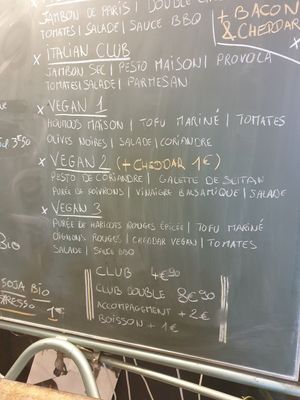 JAMBON DE PARIS | DOUBLE
TOMATES | SALADE | SAUCE BBQ
+ BACON
& CHEDDAR
× ITALIAN CLUB
JAMBON SEC | PESTO MAISON | PROVOLA
TOMATES | SALADE | PARMESAN
× VEGAN 1
HOUMOUS MAISON | TOFU MARINÉ | TOMATES
OLIVES NOIRES | SALADE | CORIANDRE
× VEGAN 2 (+ CHEDDAR 1€)
PESTO DE CORIANDRE | GALETTE DE SEITAN
PURÉE DE POIVRONS | VINAIGRE BALSAMIQUE | SALADE
× VEGAN 3
PURÉE DE HARICOTS ROUGES ÉPICÉE | TOFU MARINÉ
OIGNONS ROUGES | CHEDDAR VEGAN | TOMATES
SALADE | SAUCE BBQ
CLUB 4€90
CLUB DOUBLE 8€90
ACCOMPAGEMENT + 2€
BOISSON + 1€
3€50
BIO
SOJA BIO
1€